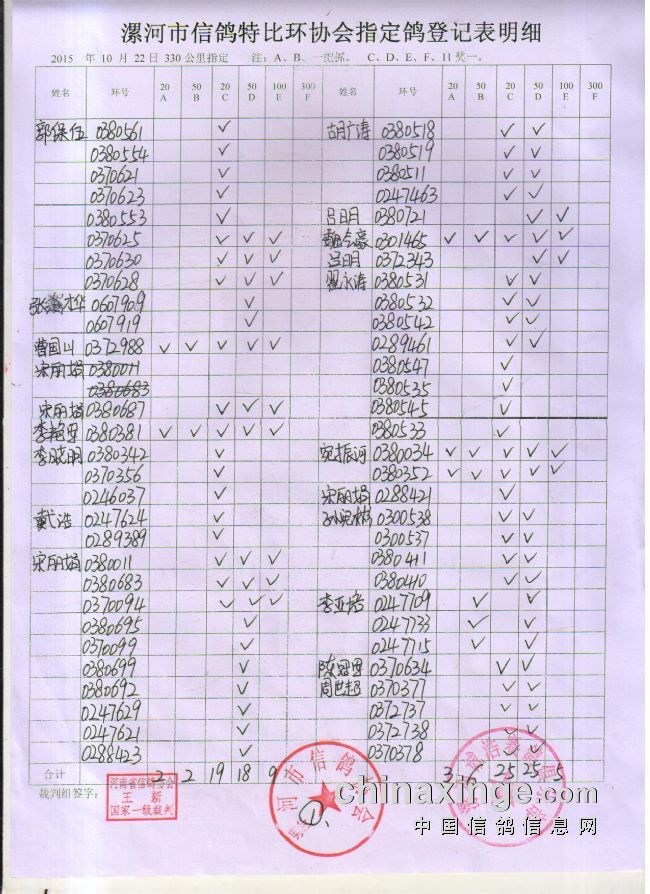 漯河市信鸽特比环协会指定鸽登记表明细
2015 年 10 月 22 日 330 公里指定 注：A、B、一把抓。 C、D、E、F、11 奖一。
姓名 环号 20 A 50 B 20 C 50 D 100 E 300 F 姓名 环号 20 A 50 B 20 C 50 D 100 E 300 F
郭保伍 0380561 ✓ 胡广涛 0380518 ✓ ✓
0380554 ✓ 0380519 ✓ ✓
0370621 ✓ 0380511 ✓ ✓
0370623 ✓ 0247463 ✓ ✓
0380553 ✓ 吕明 0380721 ✓ ✓
0370625 ✓ ✓ ✓ 0301465 ✓ ✓ ✓ ✓ ✓
0370630 ✓ ✓ ✓ 吕明 0372343 ✓ ✓
0370628 ✓ ✓ ✓ 翟永涛 0380531 ✓ ✓
0607909 ✓ 0380532 ✓ ✓
0607919 ✓ 0380542 ✓ ✓
曹国川 0372988 ✓ ✓ ✓ ✓ ✓ 0289461 ✓ ✓
宋丽娟 0380011 0380547 ✓
0380683 0380535 ✓
宋丽娟 0380687 ✓ ✓ ✓ 0380545 ✓
0380381 ✓ ✓ ✓ ✓ ✓ 0380533 ✓
李晓明 0380342 ✓ 宛振河 0380034 ✓ ✓ ✓ ✓ ✓
0370356 ✓ 0380352 ✓ ✓ ✓ ✓ ✓
0246037 ✓ 宋丽娟 0288421 ✓
戴浩 0247624 ✓ 0300538 ✓ ✓
0289389 ✓ 0300537 ✓ ✓
宋丽娟 0380011 ✓ ✓ ✓ 0380411 ✓ ✓
0380683 ✓ ✓ ✓ 0380410 ✓ ✓
0370094 ✓ ✓ ✓ 李亚培 0247709 ✓ ✓
0380695 ✓ 0247733 ✓ ✓
0370099 ✓ 0247715 ✓ ✓
0380699 ✓ 0370634 ✓ ✓
0380692 ✓ 周世超 0370377 ✓ ✓
0247629 ✓ 0372737 ✓ ✓
0247621 ✓ 0372738 ✓ ✓
0288423 ✓ 0370378 ✓ ✓
合计 2 2 19 18 9 3 6 25 25 5
裁判组签字：
河南省信鸽协会
王新
国家一级裁判
漯河市信鸽协会
①.
chinaxinge.com
中国信鸽信息网